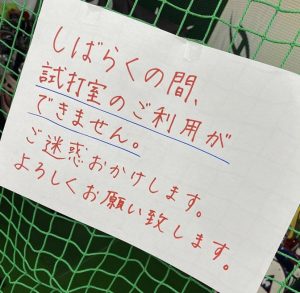 しばらくの間、
試打室のご利用が
できません。
ご迷惑おかけします。
よろしくお願い致します。